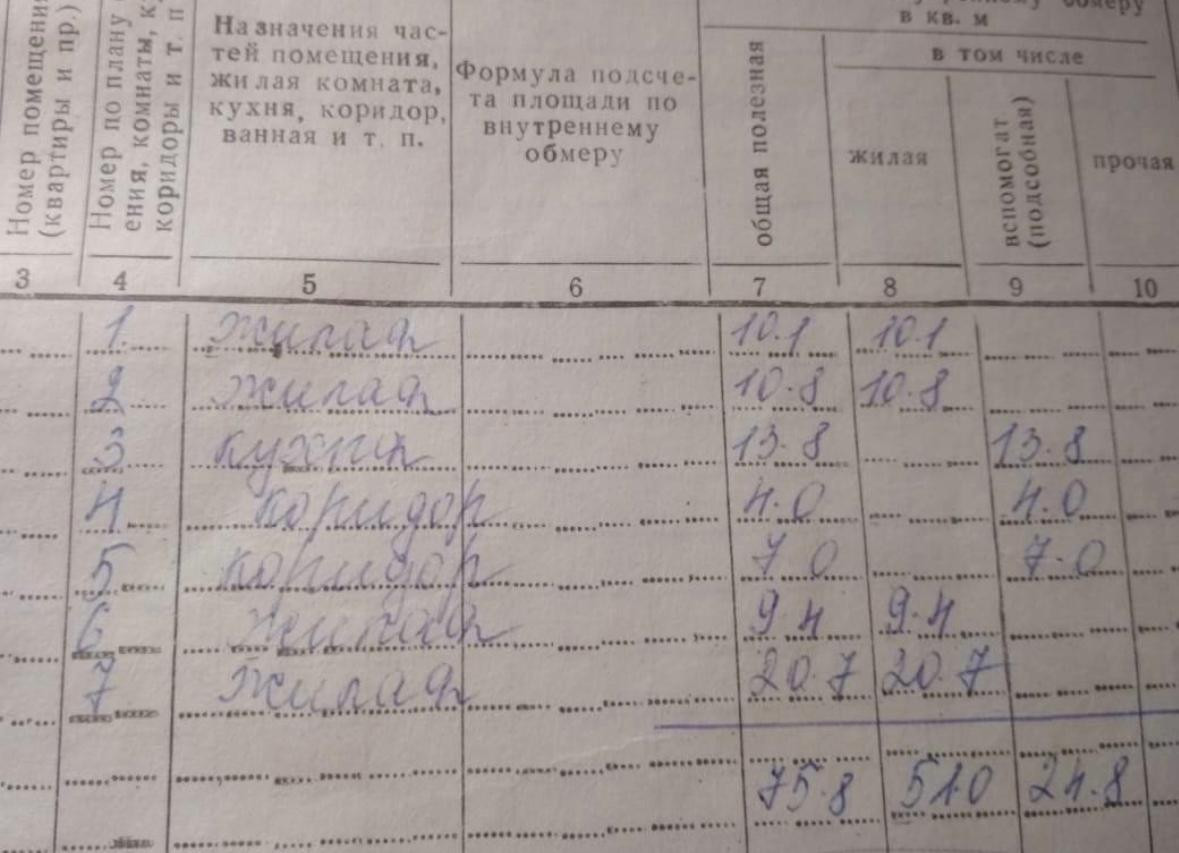 Номер помещения
(квартиры и пр.)
Номер по плану
ения, комнаты, к
коридоры и т. п
Назначения час-
тей помещения,
жилая комната,
кухня, коридор,
ванная и т. п.
Формула подсче-
та площади по
внутреннему
обмеру
обмеру
в кв. м
общая полезная
в том числе
жилая
вспомогат
(подсобная)
прочая
3 4 5 6 7 8 9 10
1. жилая 10.1 10.1
2 жилая 10.8 10.8
3 кухня 13.8 13.8
4 коридор 4.0 4.0
5 коридор 7.0 7.0
6 жилая 9.4 9.4
7 жилая 20.7 20.7
75.8 51.0 24.8